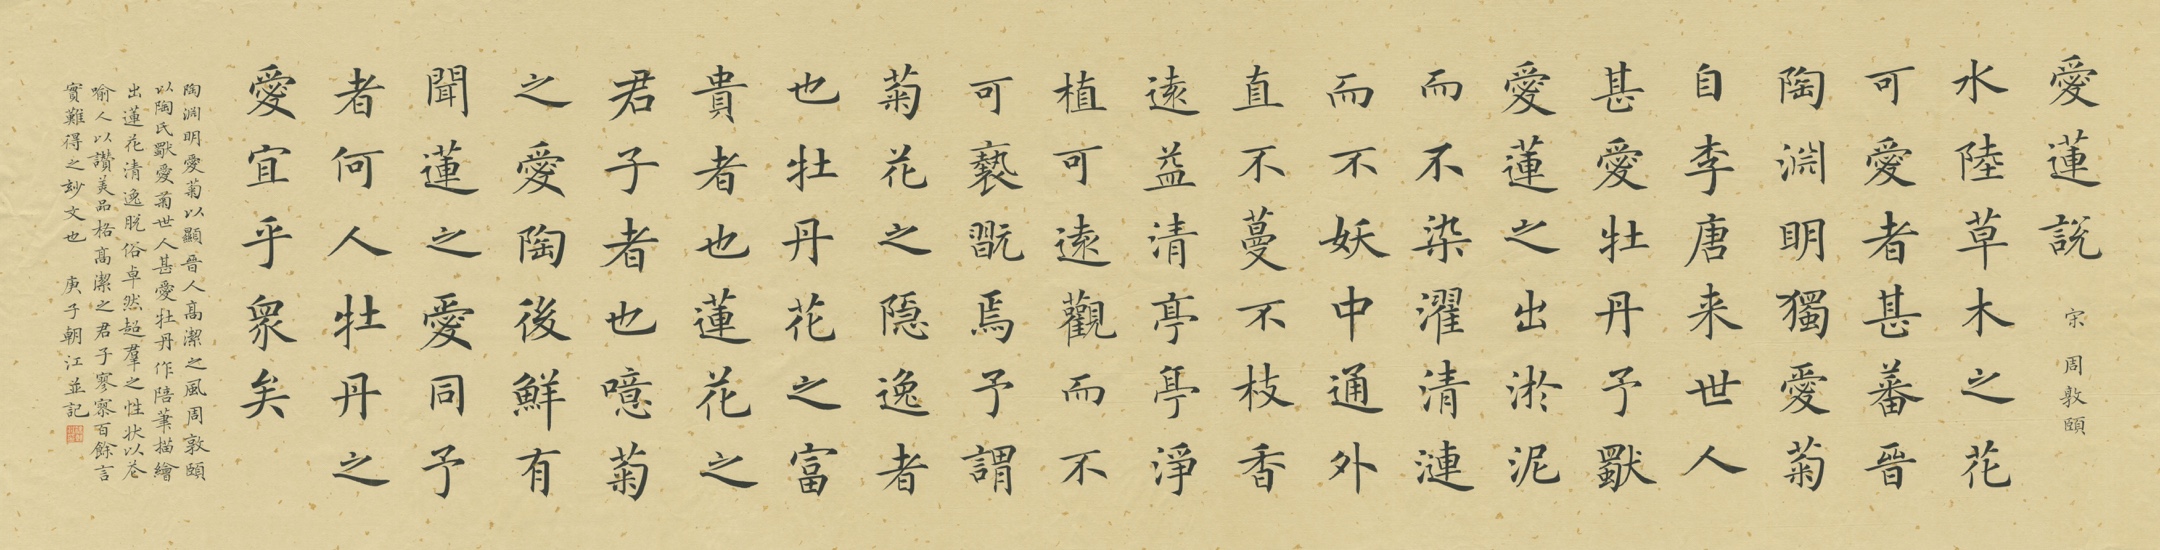 愛蓮說 宋 周敦頤
水陸草木之花
可愛者甚蕃晉
陶淵明獨愛菊
自李唐来世人
甚愛牡丹予獨
愛蓮之出淤泥
而不染濯清漣
而不妖中通外
直不蔓不枝香
遠益清亭亭淨
植可遠觀而不
可褻翫焉予謂
菊花之隱逸者
也牡丹花之富
貴者也蓮花之
君子者也噫菊
之愛陶後鮮有
聞蓮之愛同予
者何人牡丹之
愛宜乎衆矣
陶淵明愛菊以顯晉人高潔之風周敦頤
以陶氏獨愛菊世人甚愛牡丹作陪筆描繪
出蓮花清逸脫俗卓然超羣之性狀以花
喻人以讚美品格高潔之君子寥寥百餘言
實難得之妙文也 庚子朝江並記